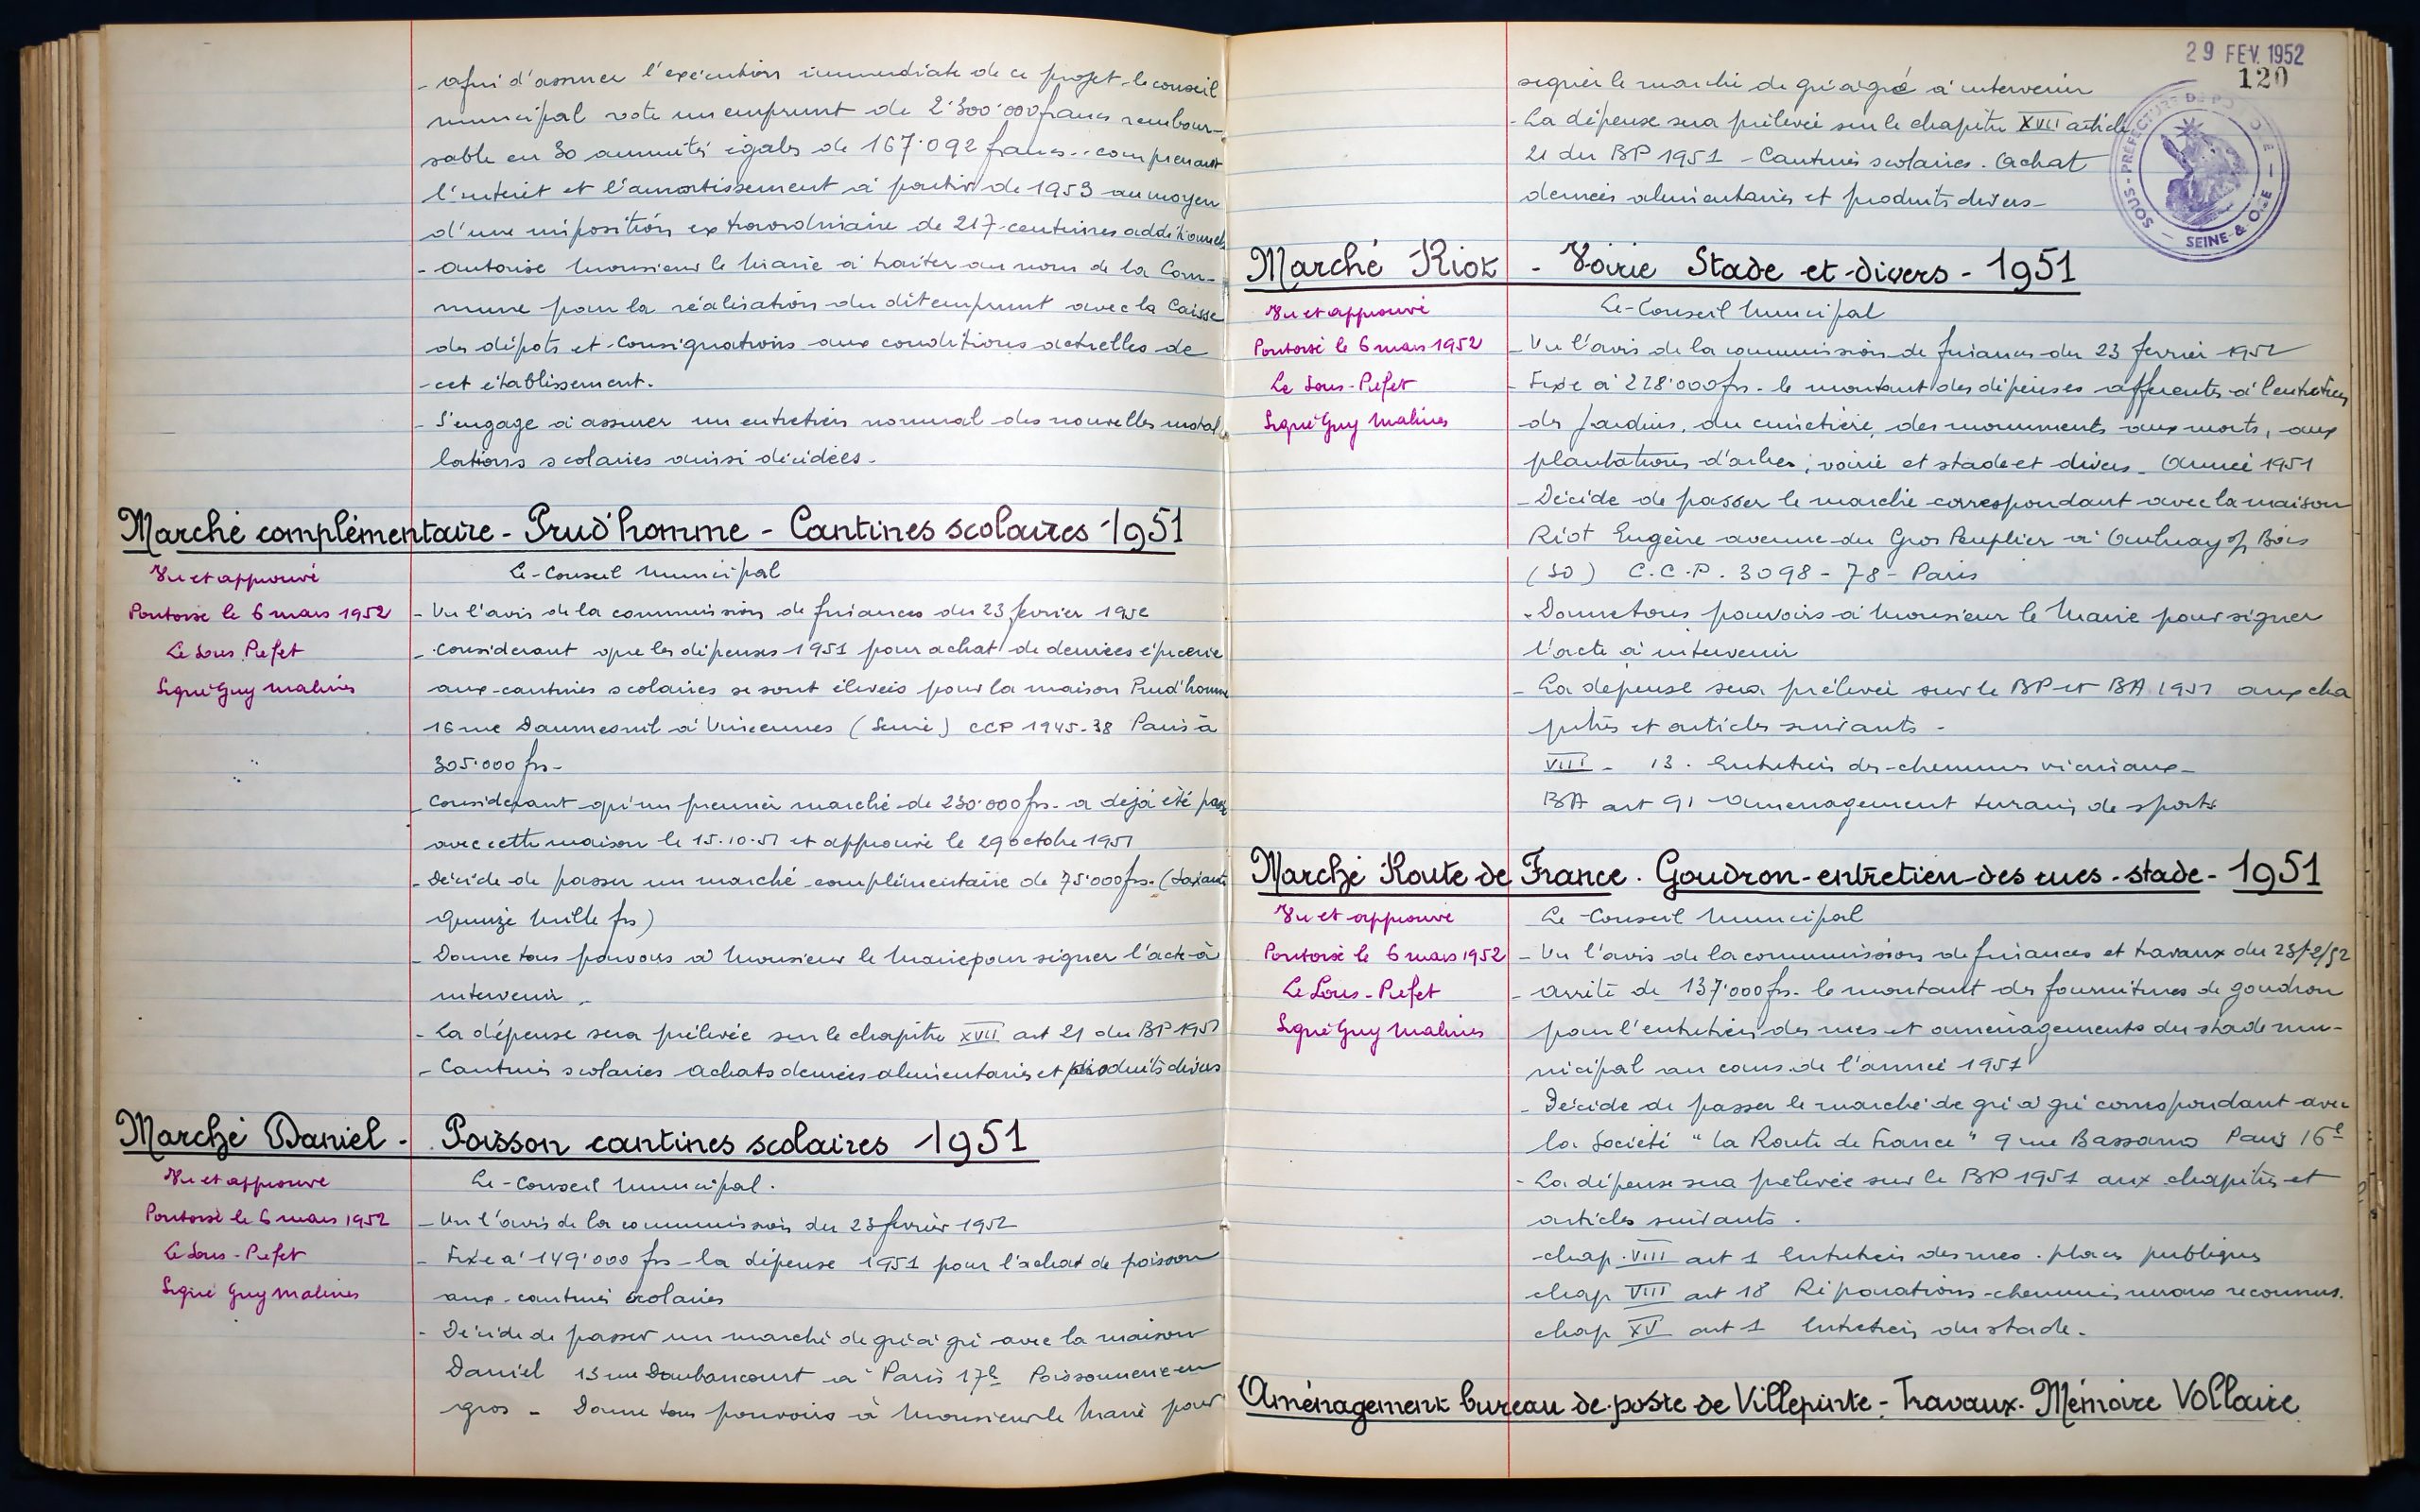 - afin d'assurer l'exécution immédiate de ce projet - le conseil
municipal vote un emprunt de 2'300'000 francs rembour-
sable en 30 annuités égales de 167.092 francs.. comprenant
l'intérêt et l'amortissement à partir de 1953 au moyen
d'une imposition extraordinaire de 217 centimes additionnels
- autorise Monsieur le Maire à traiter au nom de la Com-
mune pour la réalisation du dit emprunt avec la Caisse
des dépots et Consignations aux conditions actuelles de
- cet établissement.
- S'engage à assurer un entretien normal des nouvelles instal
lations scolaires ainsi décidées -
Marché complémentaire - Prud'homme - Cantines scolaires 1951
Vu et approuvé
Pontoise le 6 mars 1952
Le Sous Prefet
Signé Guy Malines
Le - Conseil Municipal
- Vu l'avis de la commission de finances du 23 fevrier 1952
- Considerant que les dépenses 1951 pour achat de denrées épicerie
aux - cantines scolaires se sont élevées pour la maison Prud'homme
16 rue Daumesnil à Vincennes (Seine) CCP 1945-38 Paris à
305'000 frs -
- Considerant qu'un premier marché de 230'000 frs - a déjà été passé
avec cette maison le 15.10.51 et approuvé le 29 octobre 1951
- Décide de passer un marché complémentaire de 75'000 frs. (soixante
quinze mille frs)
- Donne tous pouvoirs à Monsieur le Maire pour signer l'acte à
intervenir -
- La dépense sera prélevée sur le chapitre XVII art 21 du BP 1951
- Cantines scolaires Achats denrées alimentaires et produits divers
Marché Daniel - Poisson cantines scolaires 1951
Vu et approuvé
Pontoise le 6 mars 1952
Le Sous - Prefet
Signé Guy Malines
Le - Conseil Municipal.
- Vu l'avis de la commission du 23 février 1952
- Fixe à 149'000 frs - la dépense 1951 pour l'achat de poisson
aux - cantines scolaires
- Décide de passer un marché de gré à gré avec la maison
Daniel 13 rue à Paris 17e Poissonnerie en
gros - Donne tous pouvoirs à Monsieur le Maire pour
29 FEV. 1952
120
SOUS-PRÉFECTURE DE PONTOISE
SEINE-&-OISE
signer le marché de gré à gré à intervenir
- La dépense sera prélevée sur le chapitre XVII article
21 du BP 1951 - Cantines scolaires. Achat
denrées alimentaires et produits divers -
Marché Riot - Voirie Stade et divers - 1951
Vu et approuvé
Pontoise le 6 mars 1952
Le Sous - Prefet
Signé Guy Malines
Le - Conseil Municipal
- Vu l'avis de la commission de finances du 23 fevrier 1952
- Fixe à 228'000 frs - le montant des dépenses afferentes à l'entretien
des jardins, du cimetière, des monuments aux morts, aux
plantations d'arbres, voirie et stade et divers - Année 1951
- Décide de passer le marché correspondant avec la maison
Riot Eugène avenue du Gros Peuplier à Aulnay s/ Bois
(SO) C.C.P. 3098 - 78 - Paris
- Donne tous pouvoirs à Monsieur le Maire pour signer
l'acte à intervenir
- La depense sera prélevée sur le BP et BA 1951 aux cha
pitres et articles suivants -
VIII - 13 . Entretien des - chemins vicinaux -
BA art 91 Amenagement terrains de sports
Marché Route de France . Goudron - entretien - des rues - stade - 1951
Vu et approuvé
Pontoise le 6 mars 1952
Le Sous - Prefet
Signé Guy Malines
Le - Conseil Municipal
- Vu l'avis de la commission de finances et travaux du 23/2/52
- arrête de 137'000 frs - le montant des fournitures de goudron
pour l'entretien des rues et aménagements du stade mu-
nicipal au cours de l'année 1951
- Décide de passer le marché de gré à gré correspondant avec
la Société "la Route de France" 9 rue Bassano Paris 16e
- La dépense sera prélevée sur le BP 1951 aux chapitres et
articles suivants .
chap. VIII art 1 Entretien des rues . places publiques
chap VIII art 18 Réparations - chemins ruraux reconnus.
chap XV art 1 Entretien du stade -
Aménagement bureau de poste de Villepinte - Travaux - Mémoire Vollaire